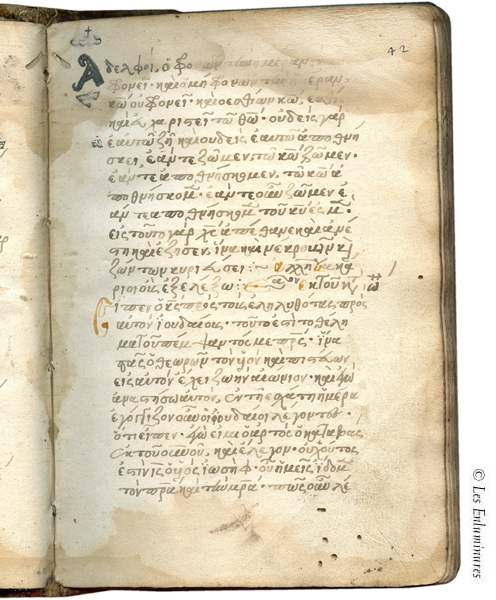 42
Ἀδελφοί, ὁ φρονῶν τὴν ἡμέραν
φρονεῖ· καὶ ὁ μὴ φρονῶν τὴν ἡμέραν
κω οὐ φρονεῖ· καὶ ὁ ἐσθίων κω
εὐχαριστεῖ τῶ θω· οὐδεὶς γὰρ
ἑαυτῶ ζῆ καὶ οὐδεὶς ἑαυτῶ ἀποθνή
σκει, ἐάν τε ζῶμεν, τῶ κω ζῶμεν·
ἐάν τε ἀποθνήσκωμεν, τῶ κω ἀ
ποθνήσκομ· ἐάν τε οὖν ζῶμεν ἐ
άν τε ἀποθνήσκωμ τοῦ κυ ἐσμ·
εἰς τοῦτο γὰρ χς ἀπέθανε καὶ ἀνέ
στη καὶ ἔζησεν· ἵνα καὶ νεκρῶν κ
ζώντων κυριεύσει
εἶπεν ὁ κς πρὸς τοὺς ἐληλυθότας πρὸς
αὐτὸν ἰουδαίους· τοῦτό ἐστι τὸ θέλη
μα τοῦ πέμψαντός με πρς· ἵνα
πᾶς ὁ θεωρῶν τὸν υἱὸν καὶ πιστεύων
εἰς αὐτὸν ἔχει ζωὴν αἰώνιον· καὶ ἐγὼ
ἀναστήσω αὐτὸν, ἐν τῆ ἐσχάτη ἡμέρα
ἐγόγγιζον οὖν οἱ ἰουδαῖοι λέγοντες
ὅτι εἶπεν· ἐγώ εἰμι ὁ ἄρτος ὁ καταβὰς
ἐκ τοῦ οὐνοῦ, καὶ ἔλεγον· οὐχ οὗτός
ἐστὶν ις ὁ υἱὸς ἰωσήφ· οὗ ἡμεῖς οἴδαμ
τὸν πρα καὶ τὴν μρα· πῶς οὖν λέ
© Les Enluminures